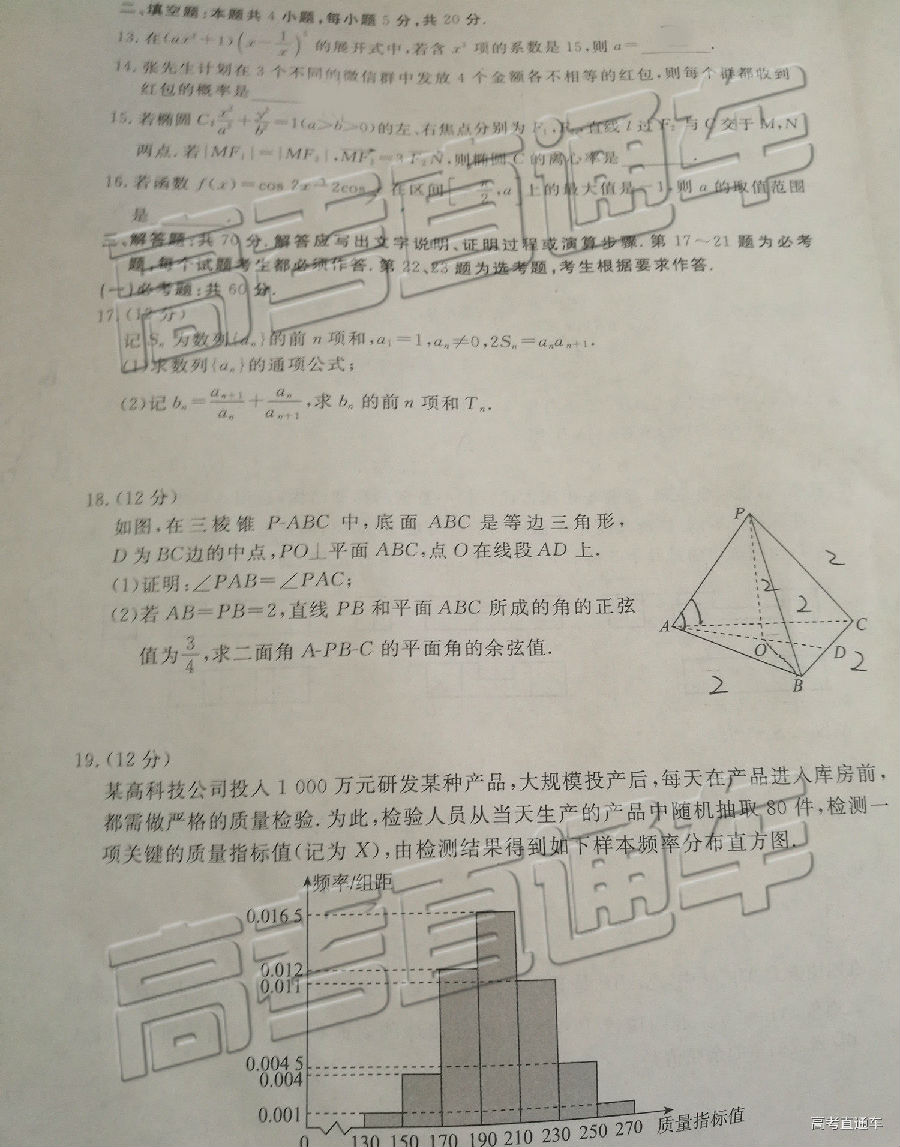 二、填空题:本题共 4 小题,每小题 5 分,共 20 分.
13.在(ax²+1)(x-1/x)⁵的展开式中,若含 x³ 项的系数是 15,则 a=______.
14.张先生计划在 3 个不同的微信群中发放 4 个金额各不相等的红包,则每个群都收到
红包的概率是______
15.若椭圆 C:x²/a²+y²/b²=1(a>b>0)的左、右焦点分别为 F₁,F₂,直线 l 过 F₂ 与 C 交于 M,N
两点.若|MF₁|=|MF₂|,MF₂=3F₂N,则椭圆 C 的离心率是______.
16.若函数 f(x)=cos 2x-2cos x 在区间[-π/2,a]上的最大值是-1,则 a 的取值范围
是______.
三、解答题:共 70 分.解答应写出文字说明、证明过程或演算步骤.第 17~21 题为必考
题,每个试题考生都必须作答.第 22、23 题为选考题,考生根据要求作答.
(一)必考题:共 60 分.
17.(12 分)
记 Sₙ 为数列{aₙ}的前 n 项和,a₁=1,aₙ≠0,2Sₙ=aₙaₙ₊₁.
(1)求数列{aₙ}的通项公式;
(2)记 bₙ=aₙ₊₁/aₙ+aₙ/aₙ₊₁,求 bₙ 的前 n 项和 Tₙ.
18.(12 分)
如图,在三棱锥 P-ABC 中,底面 ABC 是等边三角形,
D 为 BC边的中点,PO⊥平面 ABC,点 O 在线段 AD 上.
(1)证明:∠PAB=∠PAC;
(2)若 AB=PB=2,直线 PB 和平面 ABC 所成的角的正弦
值为3/4,求二面角 A-PB-C 的平面角的余弦值.
P
2
2
2
A
C
O
D
2
2
B
19.(12 分)
某高科技公司投入 1 000 万元研发某种产品,大规模投产后,每天在产品进入库房前,
都需做严格的质量检验.为此,检验人员从当天生产的产品中随机抽取 80 件,检测一
项关键的质量指标值(记为 X),由检测结果得到如下样本频率分布直方图.
频率/组距
0.016 5
0.012
0.011
0.004 5
0.004
0.001
0 130 150 170 190 210 230 250 270 质量指标值
高考直通车
高考直通车
高考直通车